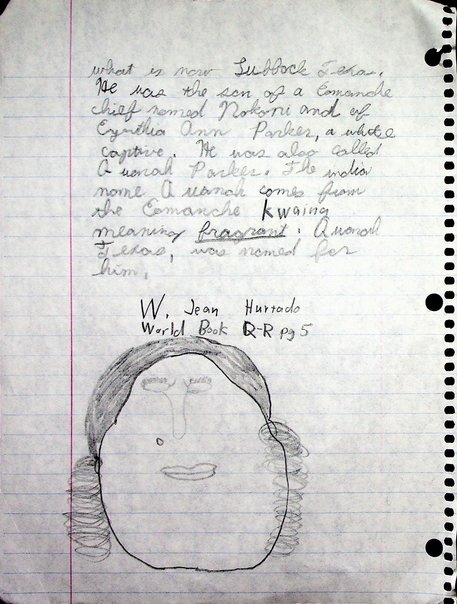 what is now Lubbock Texas.
He was the son of a Comanche
chief named Nokoni and of
Cynthia Ann Parker, a white
captive. He was also called
Quanah Parker. The indian
name Quanah comes from
the Comanche kwaina
meaning fragrant. Quanah
Texas, was named for
him.
W. Jean Hurtado
World Book Q-R pg 5